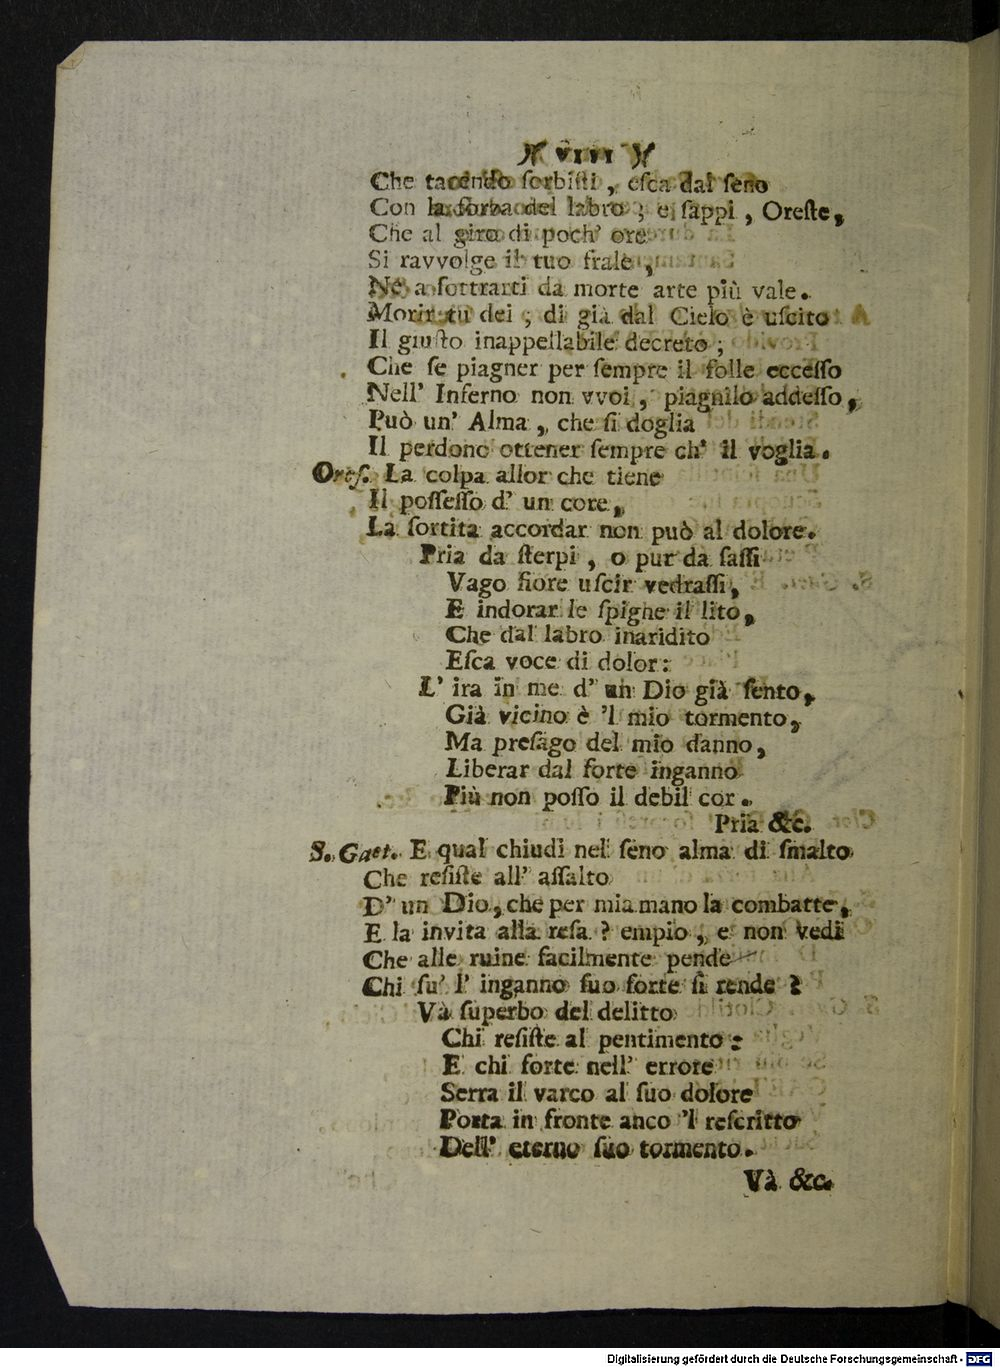 VIII
Che tacendo sorbisti, esca dal seno
Con la forba del labro; e sappi, Oreste,
Che al giro di poch' ore
Si ravvolge il tuo frale,
Nè a sottrarti da morte arte più vale.
Morir tu dei; di già dal Cielo è uscito
Il giusto inappellabile decreto;
Che se piagner per sempre il folle eccesso
Nell' Inferno non vvoi, piagnilo addesso,
Può un' Alma, che si doglia
Il perdono ottener sempre ch' il voglia.
Ores. La colpa allor che tiene
Il possesso d' un core,
La sortita accordar non può al dolore.
Pria da sterpi, o pur da sassi
Vago fiore uscir vedrassi,
E indorar le spighe il lito,
Che dal labro inaridito
Esca voce di dolor:
L' ira in me d' un Dio già sento,
Già vicino è 'l mio tormento,
Ma presago del mio danno,
Liberar dal forte inganno
Più non posso il debil cor.
Pria &c.
S. Gaet. E qual chiudi nel seno alma di smalto
Che resiste all' assalto
D' un Dio, che per mia mano la combatte,
E la invita alla resa? empio, e non vedi
Che alle ruine facilmente pende
Chi su' l' inganno suo forte si rende?
Và superbo del delitto
Chi resiste al pentimento:
E chi forte nell' errore
Serra il varco al suo dolore
Porta in fronte anco 'l rescritto
Dell' eterno suo tormento.
Và &c.
Digitalisierung gefördert durch die Deutsche Forschungsgemeinschaft - DFG